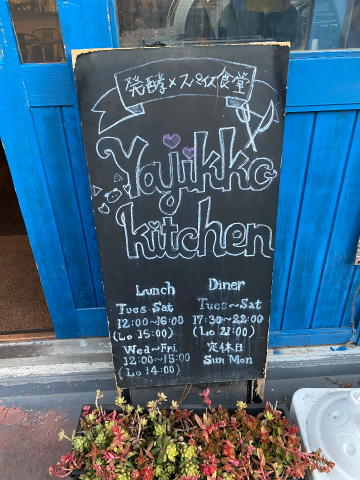 発酵×スパイス食堂
Yajikko
kitchen
Lunch
Tues-Sat
12:00~16:00
(Lo 15:00)
Wed~Fri
12:00~15:00
(Lo 14:00)
Diner
Tues~Sat
17:30~22:00
(Lo 21:00)
定休日
Sun Mon